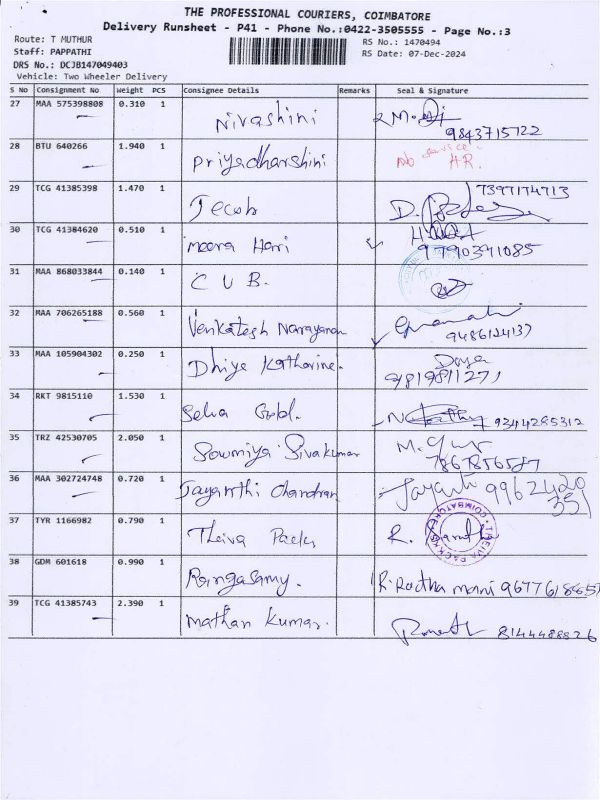 THE PROFESSIONAL COURIERS, COIMBATORE
Delivery Runsheet - P41 - Phone No.:0422-3505555 - Page No.:3
Route: T MUTHUR
RS No.: 1470494
Staff: PAPPATHI
RS Date: 07-Dec-2024
DRS No.: DCJB147049403
Vehicle: Two Wheeler Delivery
S No Consignment No Weight PCS Consignee Details Remarks Seal & Signature
27 MAA 575398808 0.310 1 Nivashini
9843715722
28 BTU 640266 1.940 1 Priyadharshini No service HR.
29 TCG 41385398 1.470 1 Jecob 7397174713
30 TCG 41384620 0.510 1 Meera Hari 9790391085
31 MAA 868033844 0.140 1 C U B.
32 MAA 706265188 0.560 1 Venkatesh Narayanan
9486124137
33 MAA 105904302 0.250 1 Dhiye Katharine. Daya
9819811271
34 RKT 9815110 1.530 1 Selva Gold. 9344285312
35 TRZ 42530705 2.050 1 Sowmiya Sivakumar
7867856587
36 MAA 302724748 0.720 1 Jayanthi Chandran Jayanti 9962420
351
37 TYR 1166982 0.790 1 Theiva Packs R.
THEIVA PACKS COIMBATORE
38 GDM 601618 0.990 1 Rangasamy. R. Radha mani 9677618657
39 TCG 41385743 2.390 1 Mathan Kumar. 8144488826